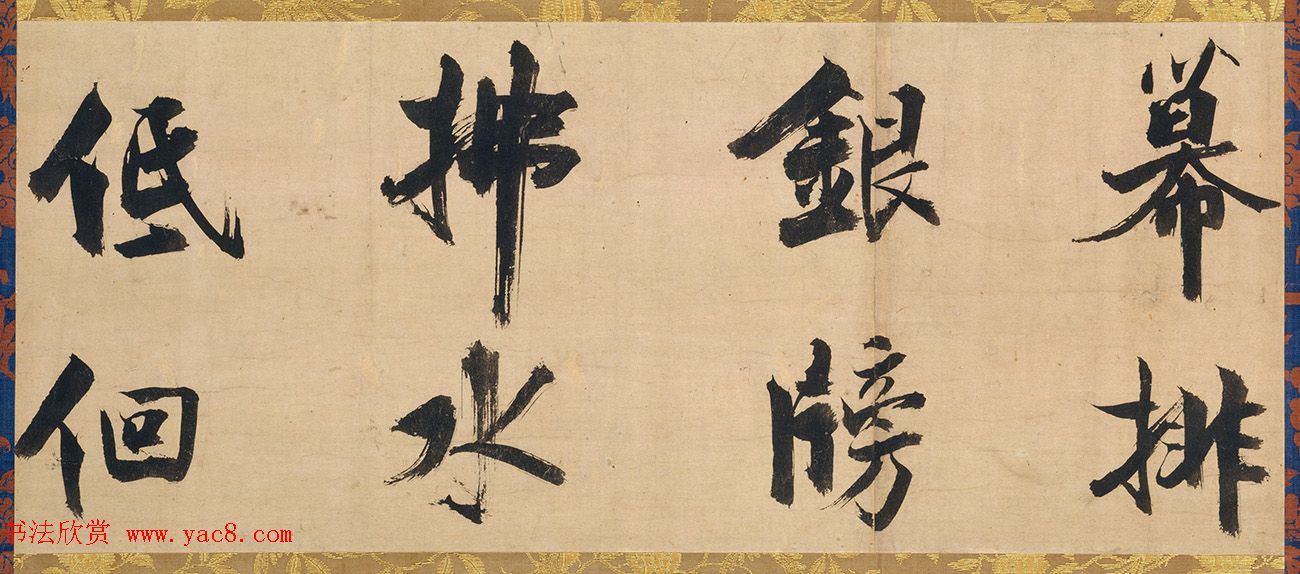 幕排
銀牓
拂水
低佪
书法欣赏 www.yac8.com